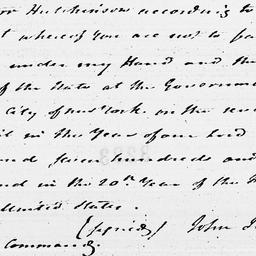 Hutchinson according to
whereof you are not to fa
under my Hand and the
of the State at the Governm
City of new York. on the
in the Year of our Lord
seven hundred and
and in the 20th Year of the
United States.
(signed) John J
Command.